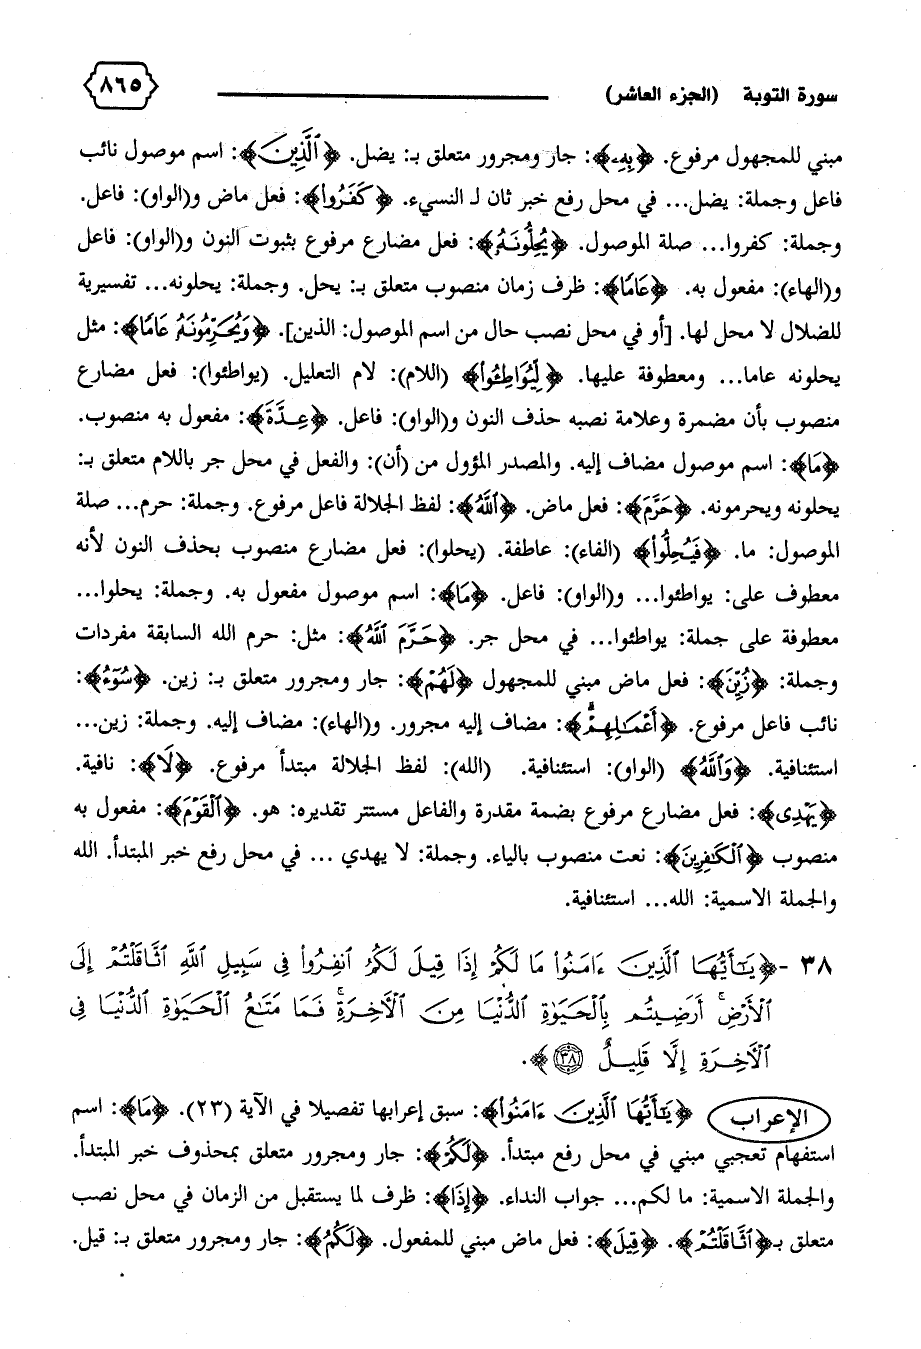 سورة التوبة (الجزء العاشر) ٨٦٥
مبني للمجهول مرفوع. ﴿بِهِ﴾: جار ومجرور متعلق بـ: يضل. ﴿الَّذِينَ﴾: اسم موصول نائب
فاعل وجملة: يضل... في محل رفع خبر ثان لـ النسيء. ﴿كَفَرُوا﴾: فعل ماض و(الواو): فاعل.
وجملة: كفروا... صلة الموصول. ﴿يُحِلُّونَهُ﴾: فعل مضارع مرفوع بثبوت النون و(الواو): فاعل
و(الهاء): مفعول به. ﴿عَامًا﴾: ظرف زمان منصوب متعلق بـ: يحل. وجملة: يحلونه... تفسيرية
للضلال لا محل لها. [أو في محل نصب حال من اسم الموصول: الذين]. ﴿وَيُحَرِّمُونَهُ عَامًا﴾: مثل
يحلونه عاما... ومعطوفة عليها. ﴿لِّيُوَاطِئُوا﴾ (اللام): لام التعليل. (يواطئوا): فعل مضارع
منصوب بأن مضمرة وعلامة نصبه حذف النون و(الواو): فاعل. ﴿عِدَّةَ﴾: مفعول به منصوب.
﴿مَا﴾: اسم موصول مضاف إليه. والمصدر المؤول من (أن): والفعل في محل جر باللام متعلق بـ:
يحلونه ويحرمونه. ﴿حَرَّمَ﴾: فعل ماض. ﴿اللَّهُ﴾: لفظ الجلالة فاعل مرفوع. وجملة: حرم... صلة
الموصول: ما. ﴿فَيُحِلُّوا﴾ (الفاء): عاطفة. (يحلوا): فعل مضارع منصوب بحذف النون لأنه
معطوف على: يواطئوا... و(الواو): فاعل. ﴿مَا﴾: اسم موصول مفعول به. وجملة: يحلوا...
معطوفة على جملة: يواطئوا... في محل جر. ﴿حَرَّمَ اللَّهُ﴾: مثل: حرم الله السابقة مفردات
وجملة: ﴿زُيِّنَ﴾: فعل ماض مبني للمجهول ﴿لَهُمْ﴾: جار ومجرور متعلق بـ: زين. ﴿سُوءُ﴾:
نائب فاعل مرفوع. ﴿أَعْمَالِهِمْ﴾: مضاف إليه مجرور. و(الهاء): مضاف إليه. وجملة: زين...
استئنافية. ﴿وَاللَّهُ﴾ (الواو): استئنافية. (الله): لفظ الجلالة مبتدأ مرفوع. ﴿لَا﴾: نافية.
﴿يَهْدِي﴾: فعل مضارع مرفوع بضمة مقدرة والفاعل مستتر تقديره: هو. ﴿الْقَوْمَ﴾: مفعول به
منصوب ﴿الْكَافِرِينَ﴾: نعت منصوب بالياء. وجملة: لا يهدي ... في محل رفع خبر المبتدأ. الله
والجملة الاسمية: الله... استئنافية.
٣٨ -﴿يَا أَيُّهَا الَّذِينَ ءَامَنُوا مَا لَكُمْ إِذَا قِيلَ لَكُمُ انفِرُوا فِي سَبِيلِ اللَّهِ اثَّاقَلْتُمْ إِلَى
الْأَرْضِ أَرَضِيتُم بِالْحَيَوٰةِ الدُّنْيَا مِنَ الْآخِرَةِ فَمَا مَتَاعُ الْحَيَوٰةِ الدُّنْيَا فِي
الْآخِرَةِ إِلَّا قَلِيلٌ ٣٨﴾.
الإعراب ﴿يَا أَيُّهَا الَّذِينَ ءَامَنُوا﴾: سبق إعرابها تفصيلا في الآية (٢٣). ﴿مَا﴾: اسم
استفهام تعجبي مبني في محل رفع مبتدأ. ﴿لَكُمْ﴾: جار ومجرور متعلق بمحذوف خبر المبتدأ.
والجملة الاسمية: ما لكم... جواب النداء. ﴿إِذَا﴾: ظرف لما يستقبل من الزمان في محل نصب
متعلق بـ﴿اثَّاقَلْتُمْ﴾. ﴿قِيلَ﴾: فعل ماض مبني للمفعول. ﴿لَكُمُ﴾: جار ومجرور متعلق بـ: قيل.